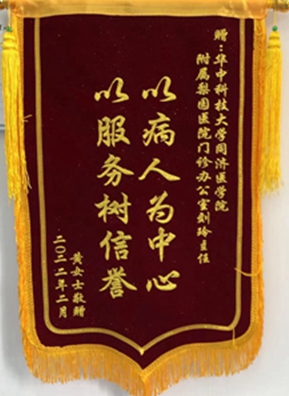 赠：华中科技大学同济医学院
附属梨园医院门诊办公室刘玲主任
以病人为中心
以服务树信誉
黄女士敬赠
二〇二二年二月